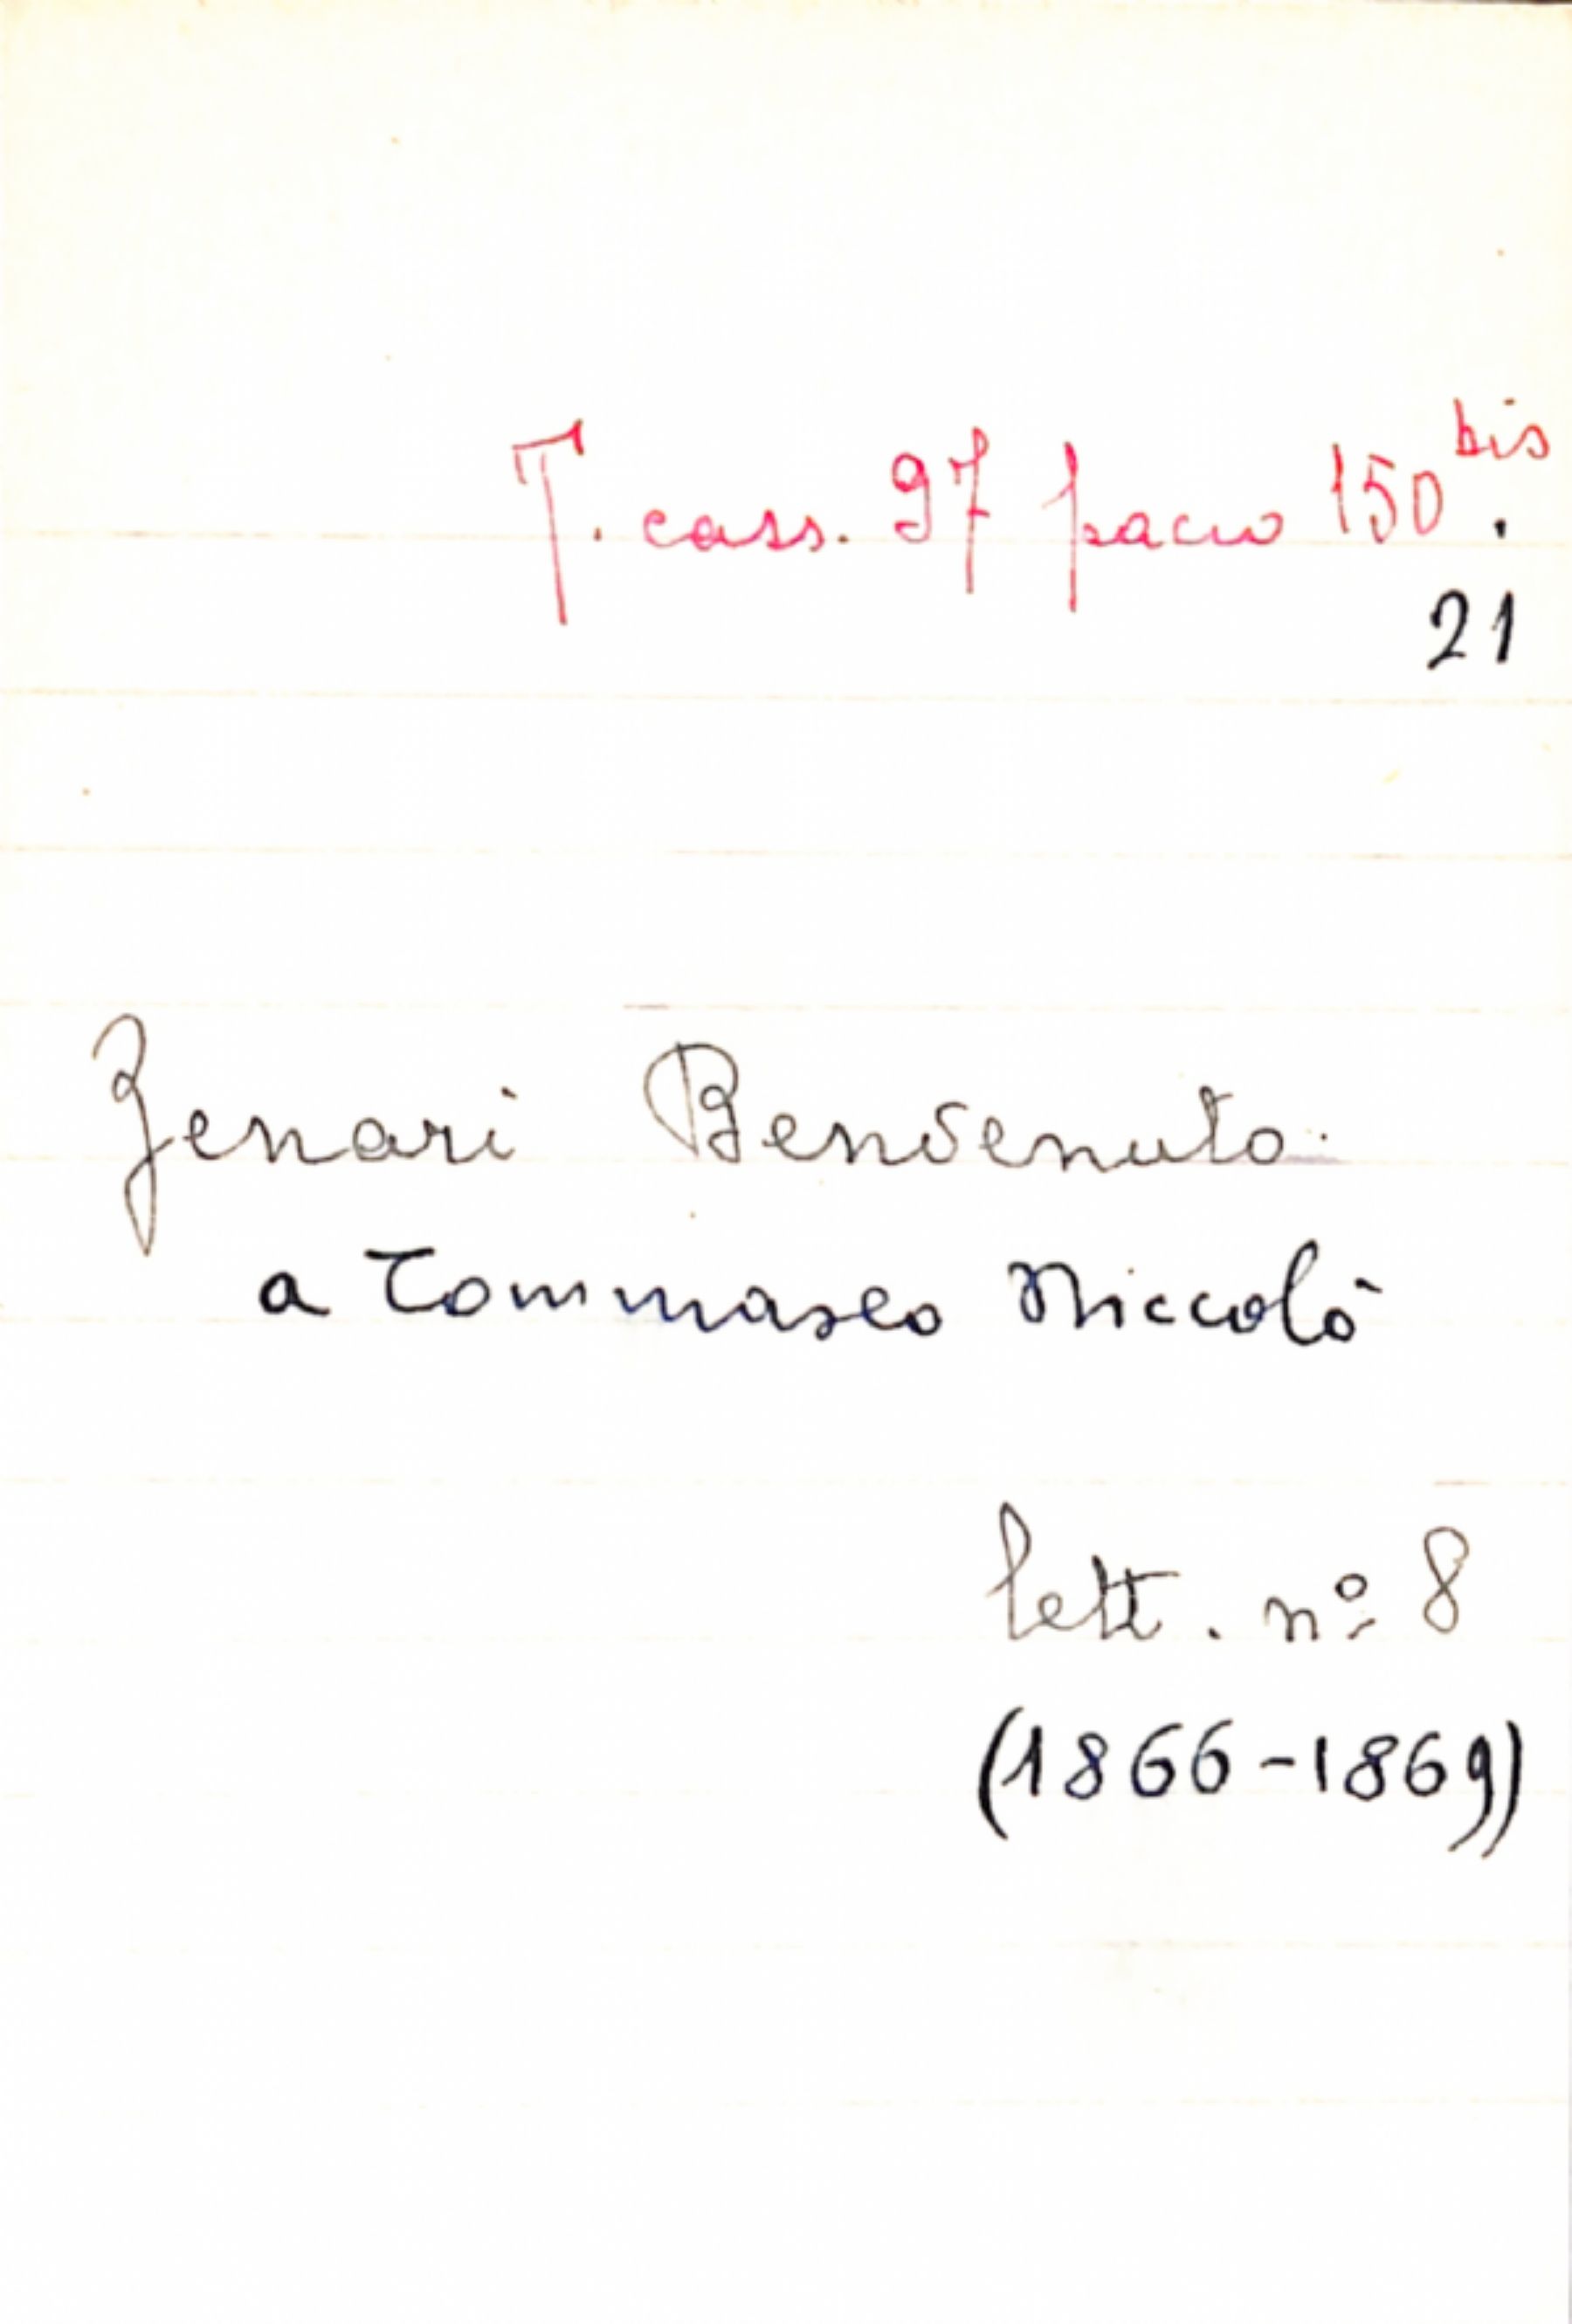 T. cass. 97 pacco 150 bis.
21
Zenari Benvenuto.
a Tommaseo Niccolò
lett. nº 8
(1866-1869)